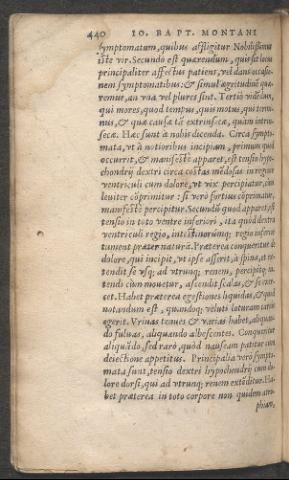 440 IO. BAPT. MONTANI
symptomatum, quibus affligitur Nobilissimus
iste vir. Secundò est quærendum, quis sit locus
principaliter affectus patiens, vel dans occasio-
nem symptomatibus: & simul ægritudinē quæ-
remus, an vna vel plures sint. Tertiò videndum,
qui mores, quod tempus, quis motus, qui termi-
nus, & quæ causæ tā extrinsecæ, quàm intrin-
secæ. Hæc sunt à nobis dicenda. Circa sympto-
mata, vt à notioribus incipiam, primum quod
occurrit, & manifestè apparet, est tensio hypo-
chondrij dextri circa costas mendosas in regione
ventriculi cum dolore, vt vix percipiatur, cùm
leuiter cōprimitur: si verò fortius cōprimatur,
manifestè percipitur. Secundū quod apparet, est
tensio in toto ventre inferiori, ita quòd dextra
ventriculi regio, intestinorumq; regio inferior
tument præter naturā. Præterea conqueritur de
dolore, qui incipit, vt ipse asserit, à spina, et ex-
tendit se vsq; ad vtrunq; renem, percipitq; in-
tendi cùm mouetur, ascendit scalas, & se exer-
cet. Habet præterea egestiones liquidas, & quod
notandum est, quandoq; veluti loturam carnis
egerit. Vrinas tenues & varias habet, aliquan-
do fuluas, aliquando albescentes. Conqueritur
aliquādo, sed rarò, quòd nauseam patitur cum
deiectione appetitus. Principalia verò sympto-
mata sunt, tensio dextri hypochondrij cum do-
lore dorsi, qui ad vtrunq; renem extēditur. Ha-
bet præterea in toto corpore non quidem atro-
phiam,